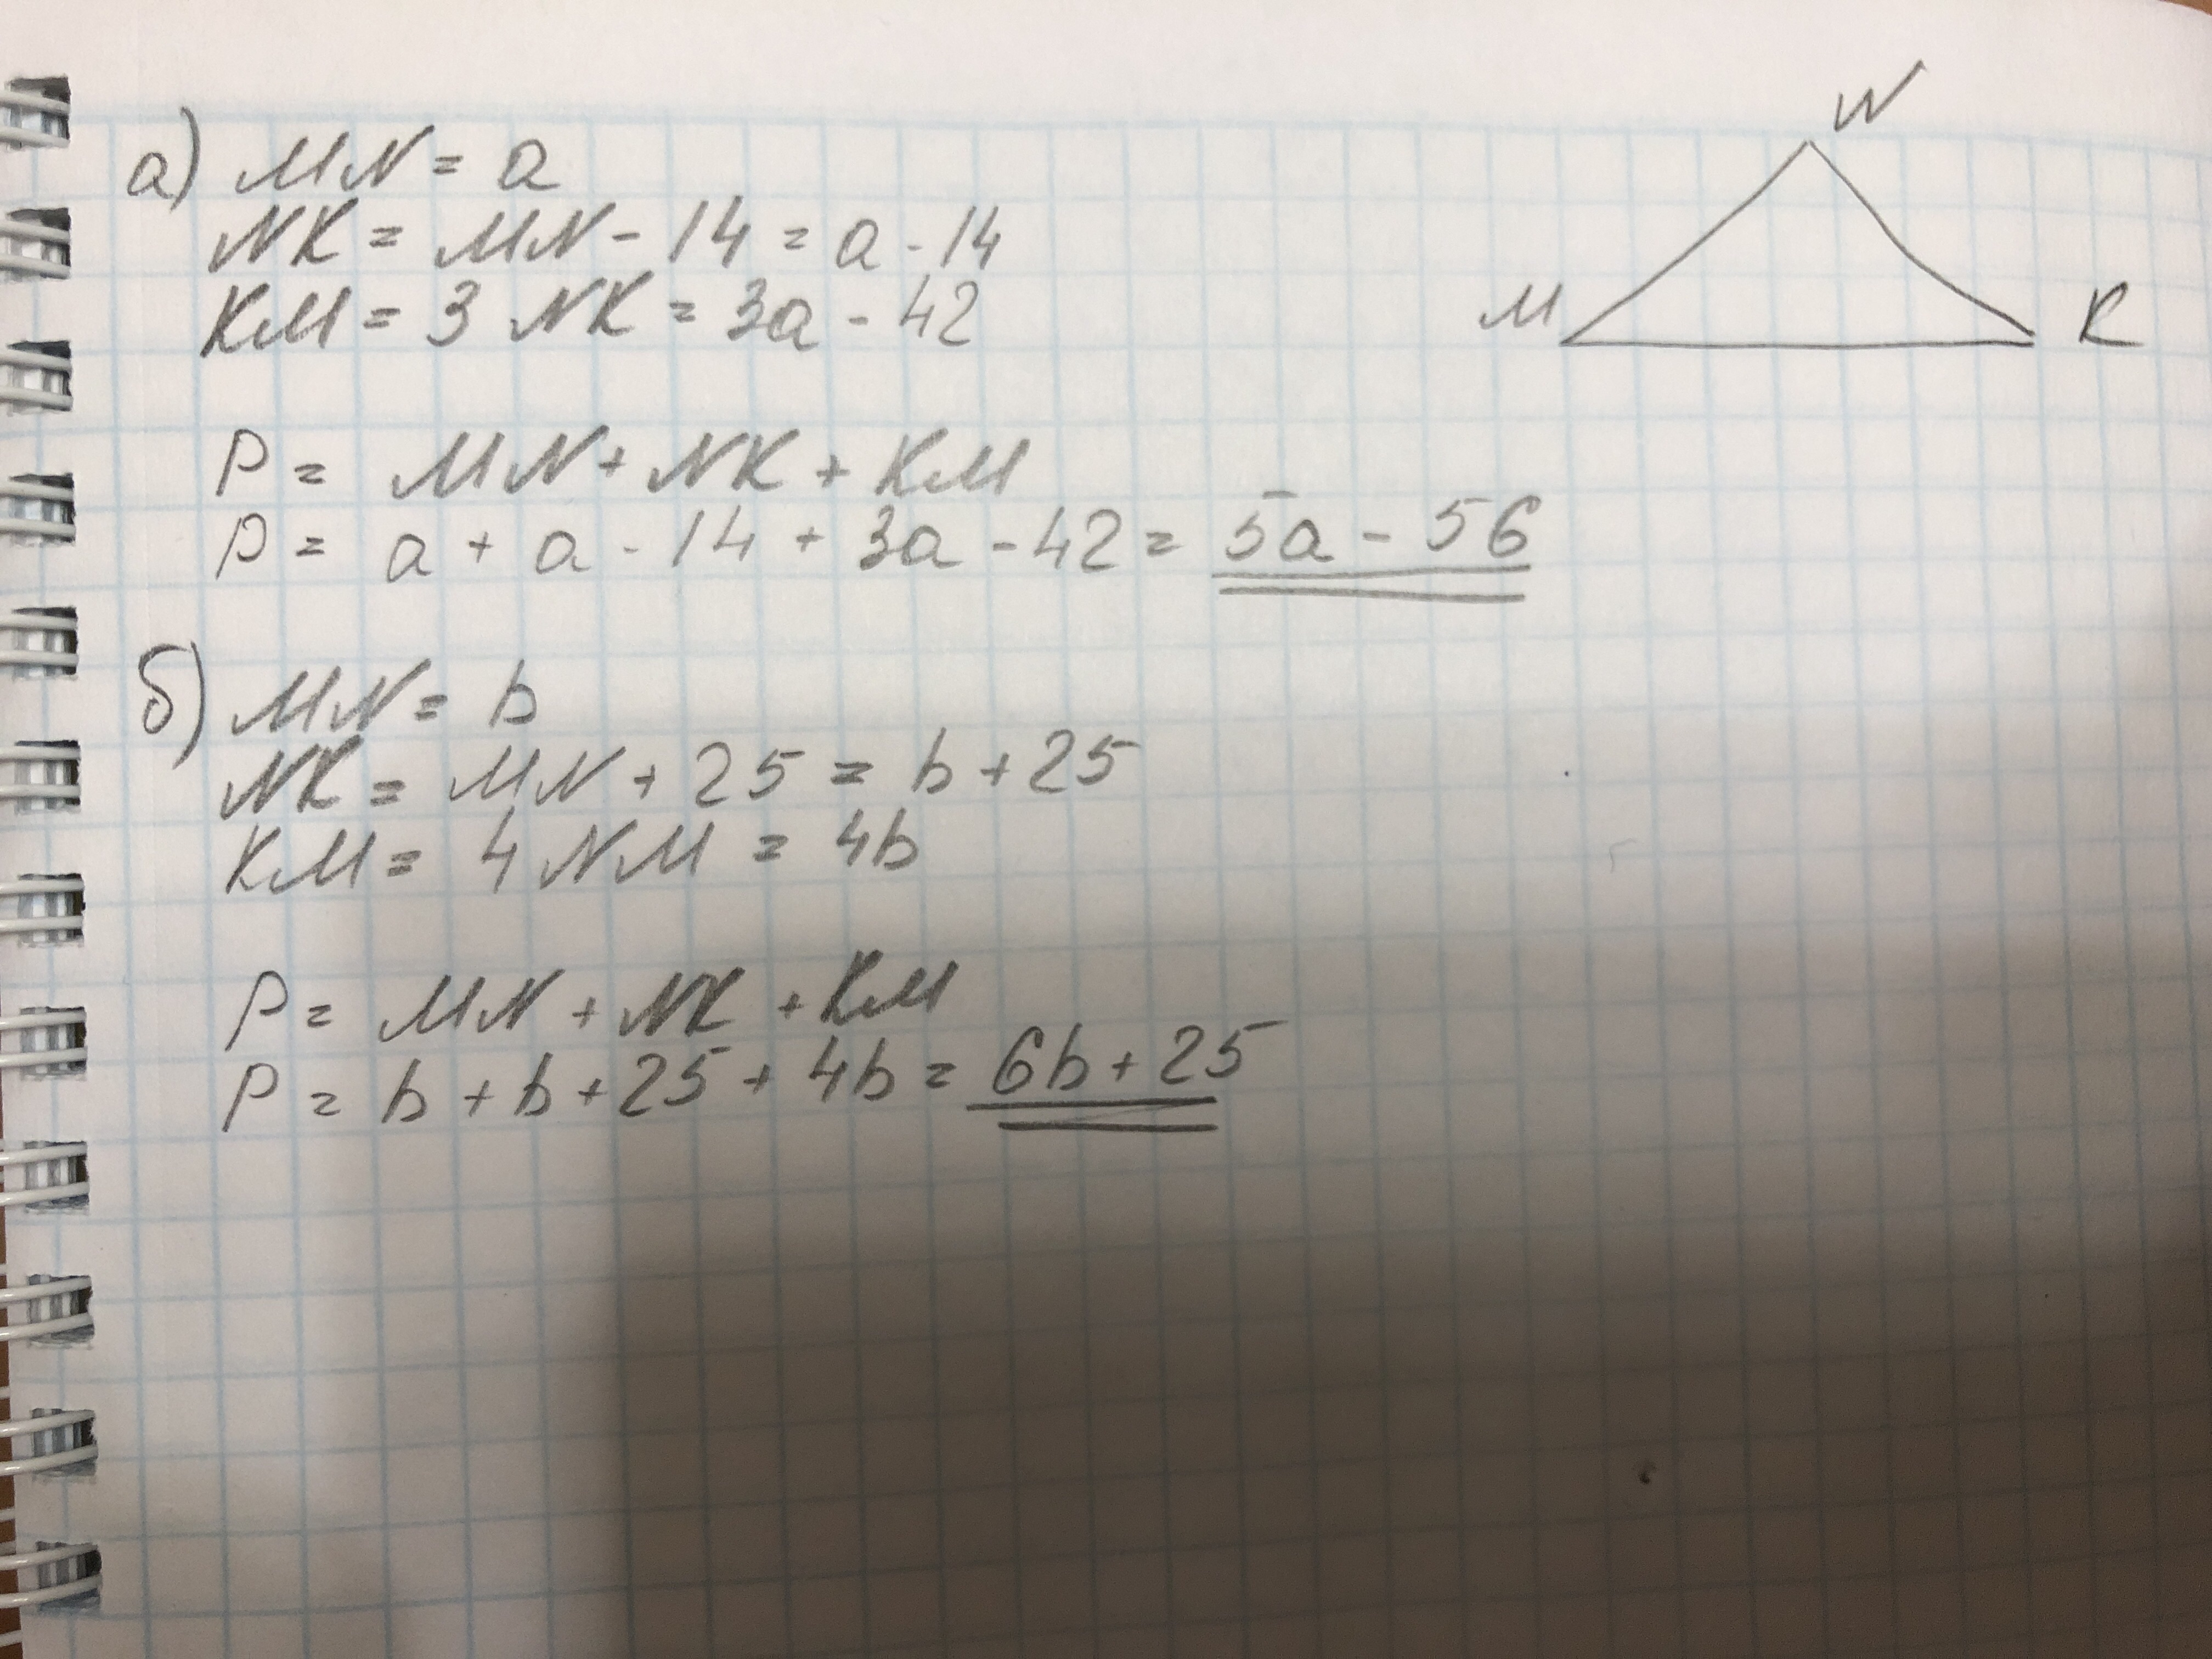 а) MN = a
NK = MN - 14 = a - 14
KM = 3 NK = 3a - 42
P = MN + NK + KM
P = a + a - 14 + 3a - 42 = 5a - 56
б) MN = b
NK = MN + 25 = b + 25
KM = 4 NM = 4b
P = MN + NK + KM
P = b + b + 25 + 4b = 6b + 25
N
M
K